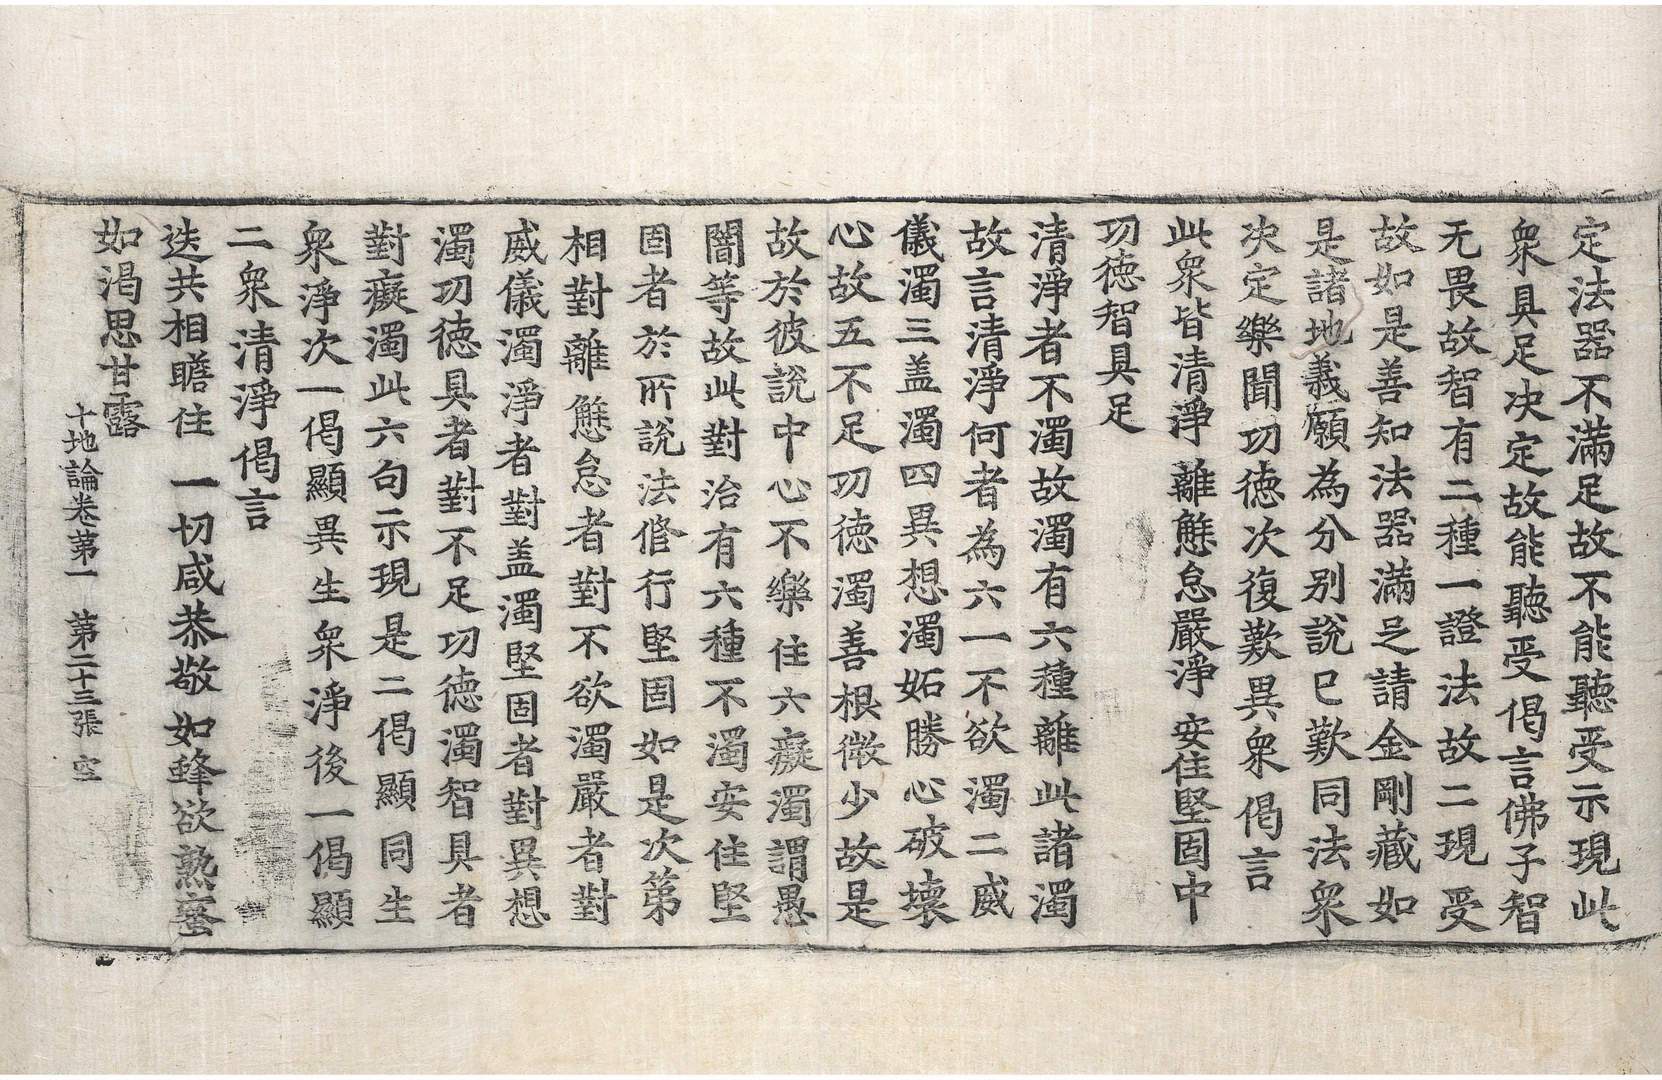 定法器不滿足故不能聽受示現此
衆具足决定故能聽受偈言佛子智
无畏故智有二種一證法故二現受
故如是善知法器滿足請金剛藏如
是諸地義願為分别說已歎同法衆
决定樂聞功德次復歎異衆偈言
此衆皆清淨 離懈怠嚴淨 安住堅固中
功德智具足
清淨者不濁故濁有六種離此諸濁
故言清淨何者為六一不欲濁二威
儀濁三盖濁四異想濁妬勝心破壞
心故五不足功德濁善根微少故是
故於彼說中心不樂住六癡濁謂愚
闇等故此對治有六種不濁安住堅
固者於所說法修行堅固如是次第
相對離懈怠者對不欲濁嚴者對
威儀濁淨者對盖濁堅固者對異想
濁功德具者對不足功德濁智具者
對癡濁此六句示現是二偈顯同生
衆淨次一偈顯異生衆淨後一偈顯
二衆清淨偈言
迭共相瞻住 一切咸恭敬 如蜂欲熟蜜
如渴思甘露
十地論卷第一 第二十三張 空